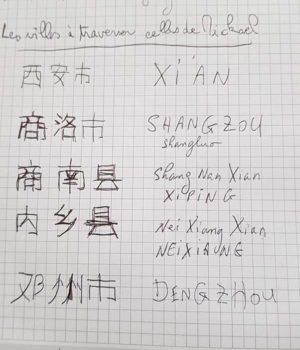 Les villes à traverser celles de Mickael
西安市 XI'AN
商洛市 SHANGZOU
shangluo
商南县 Shang Nan Xian
XIPING
内乡县 Nei Xiang Xian
NEIXIANG
邓州市 DENGZHOU